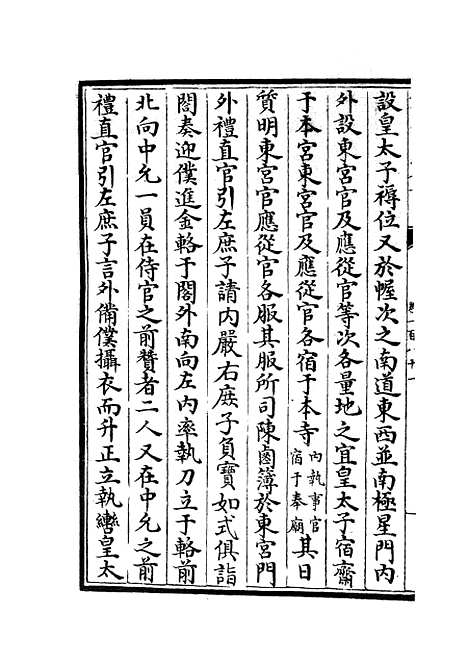 設皇太子褥位又於幄次之南道東西並南極星門内
外設東宮官及應從官等次各量地之宜皇太子宿齋
于本宮東宮官及應從官各宿于本寺内執事官宿于奉廟其日
質明東宮官應從官各服其服所司陳鹵簿於東宮門
外禮直官引左庶子請内嚴右庶子負寳如式俱詣
閤奏迎僕進金輅于閤外南向左内率執刀立于輅前
北向中允一員在侍官之前贊者二人又在中允之前
禮直官引左庶子言外備僕攝衣而升正立執轡皇太